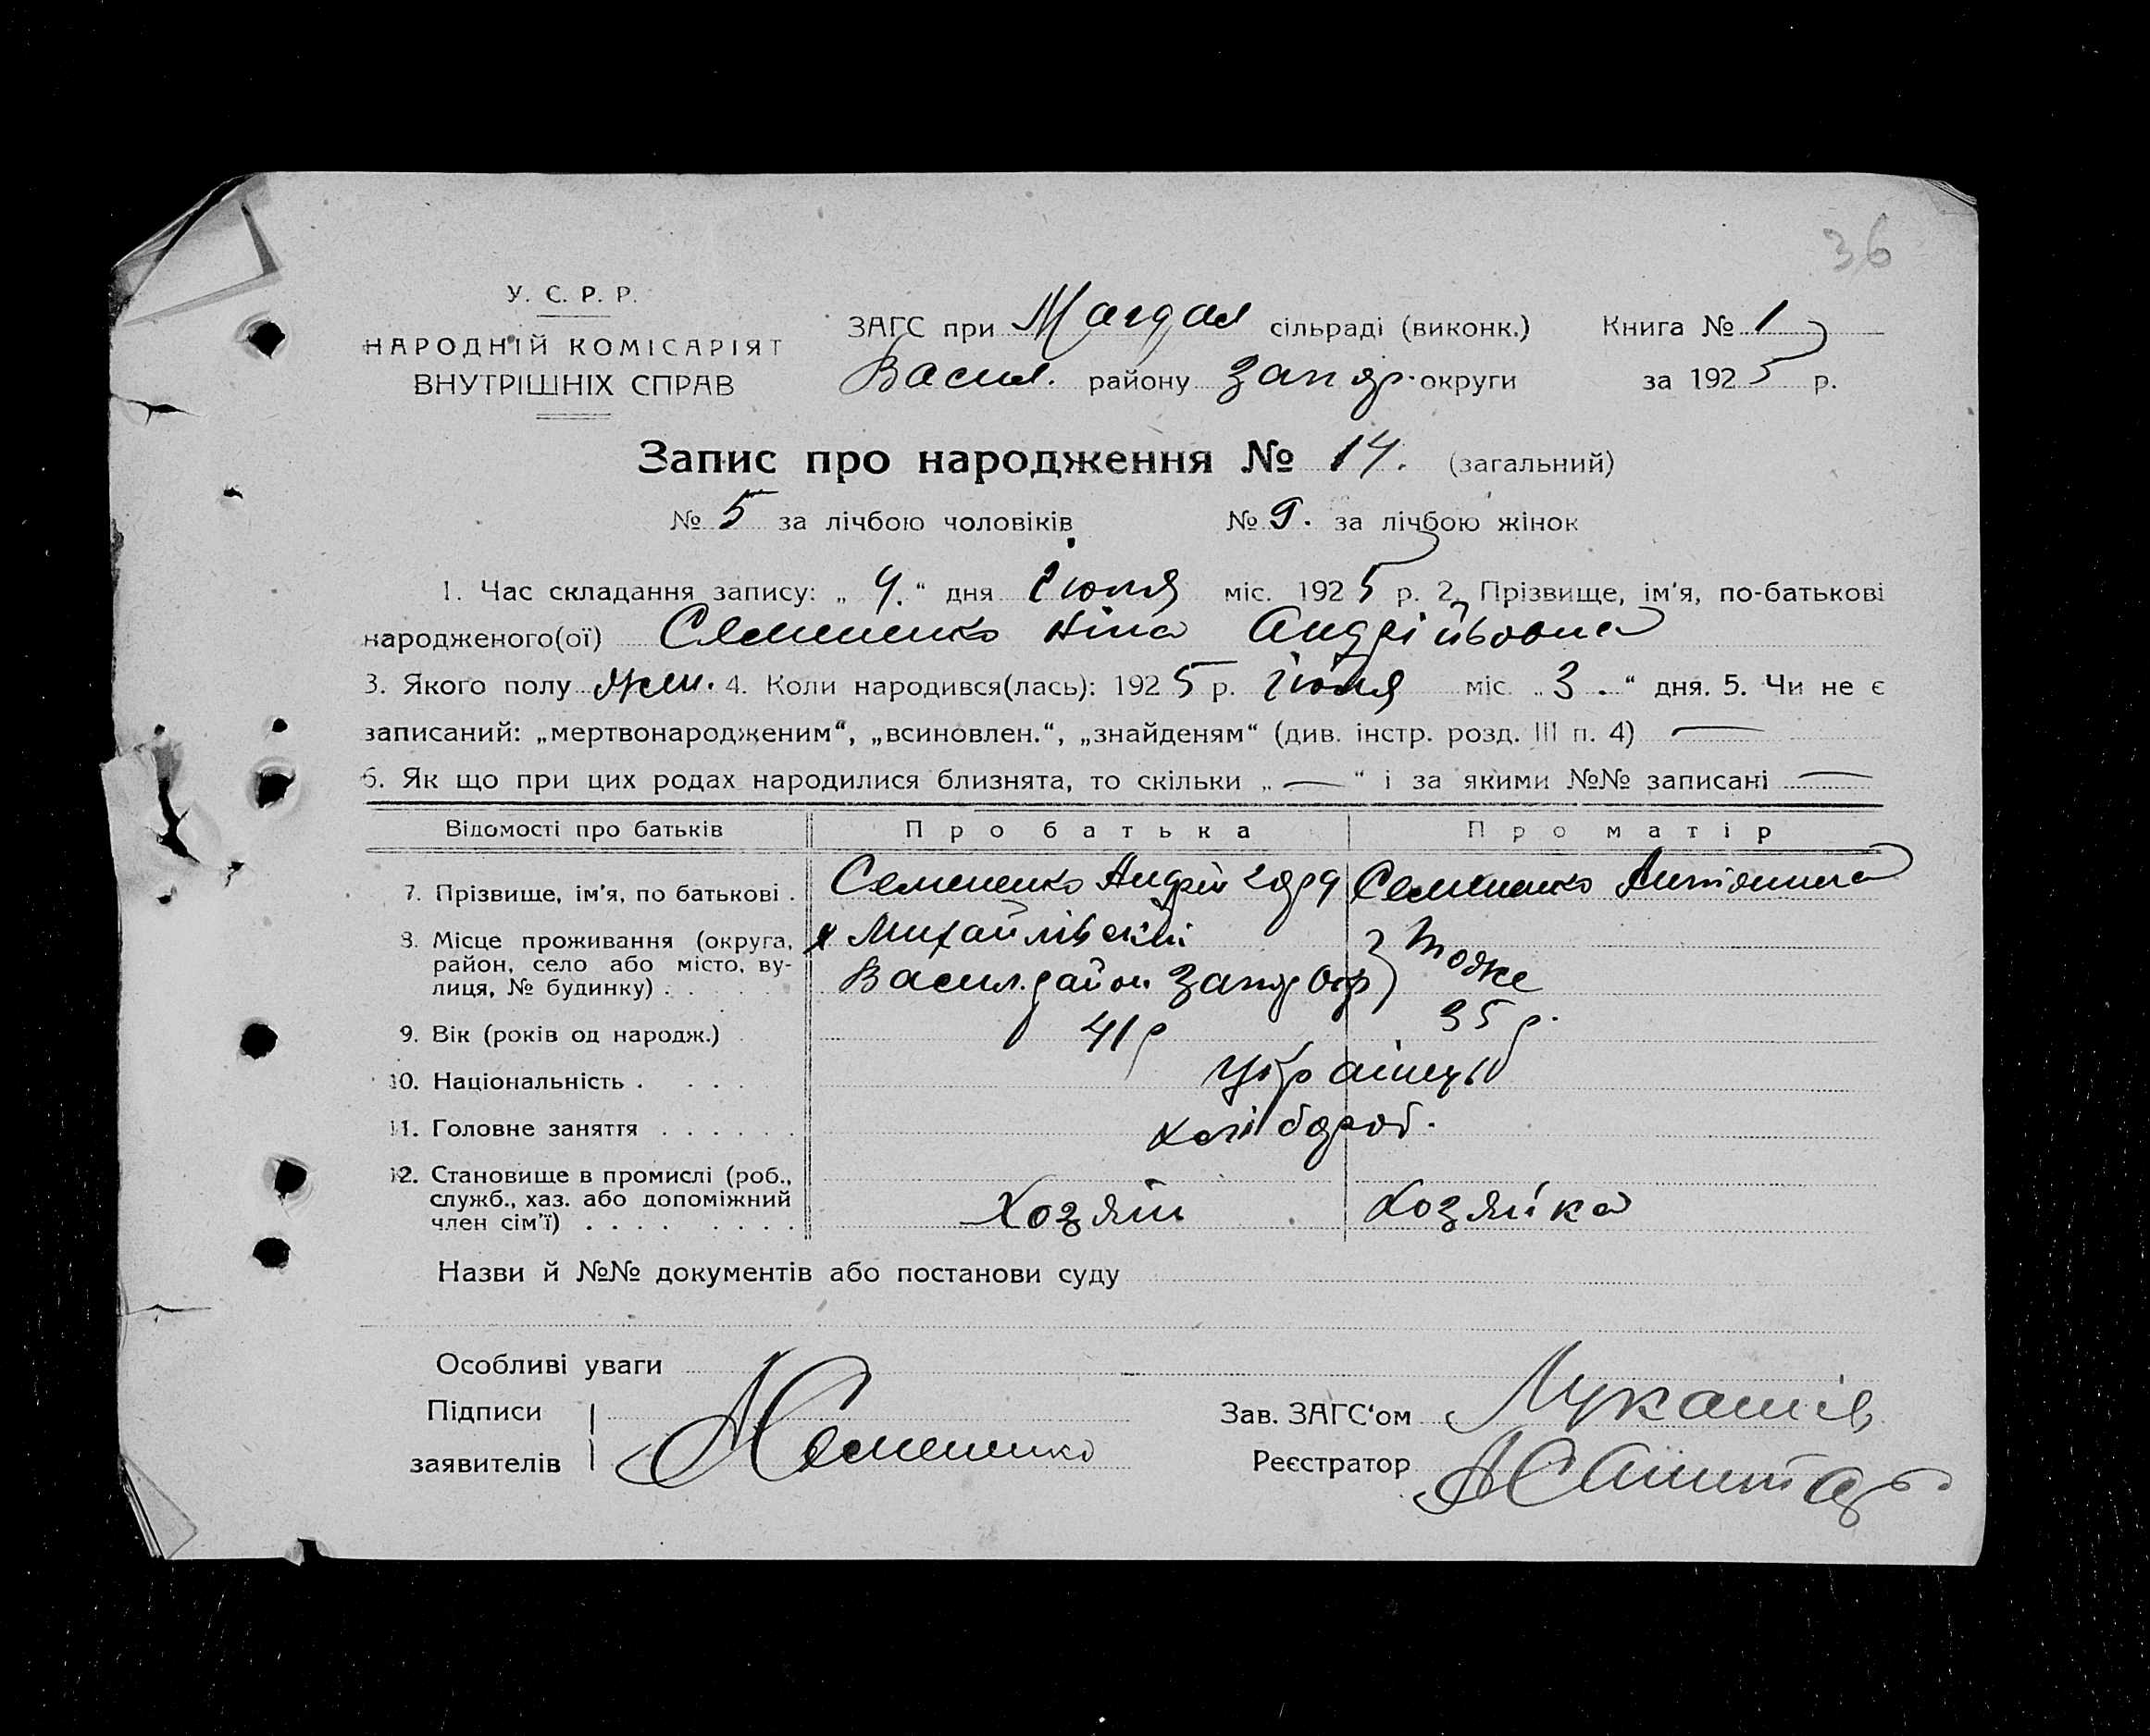 36
У. С. Р. Р.
НАРОДНІЙ КОМІСАРІЯТ
ВНУТРІШНІХ СПРАВ
ЗАГС при Магдал сільраді (виконк.)
Васил. району Запор. округи
Книга № 1
за 1925 р.
Запис про народження № 14. (загальний)
№ 5 за лічбою чоловіків № 9. за лічбою жінок
1. Час складання запису: „ 4. “ дня Іюля міс. 1925 р. 2. Прізвище, ім'я, по-батькові
народженого(ої) Семененко Ніна Андрійовна
3. Якого полу жен. 4. Коли народився(лась): 1925 р. Іюля міс. „ 3. “ дня. 5. Чи не є
записаний: „мертвонародженим“, „всиновлен.“, „знайденям“ (див. інстр. розд. III п. 4) —
6. Як що при цих родах народилися близнята, то скільки „ — “ і за якими №№ записані —
Відомості про батьків Про батька Про матір
7. Прізвище, ім'я, по батькові . Семененко Андрій Семененко
8. Місце проживання (округа, район, село або місто, вулиця, № будинку) . х Михайлівскій
Васил. район Запор Окр } тоже
9. Вік (років од народж.) 41 р 35 р.
10. Національність . . . . Українцы
11. Головне заняття . . . . . . хлібороб.
12. Становище в промислі (роб.,
служб., хаз. або допоміжний
член сім'ї) . . . . . . . . Хозяїн Хозяйка
Назви й №№ документів або постанови суду
Особливі уваги
Підписи
заявителів А Семененко
Зав. ЗАГС'ом Лукашів
Реєстратор